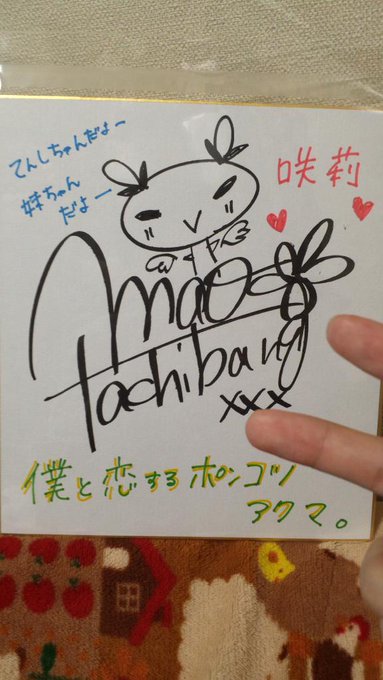 てんしちゃんだよー
妹ちゃん
だよー
咲莉
mao
Tachibana
xxx
僕と恋するポンコツ
アクマ。